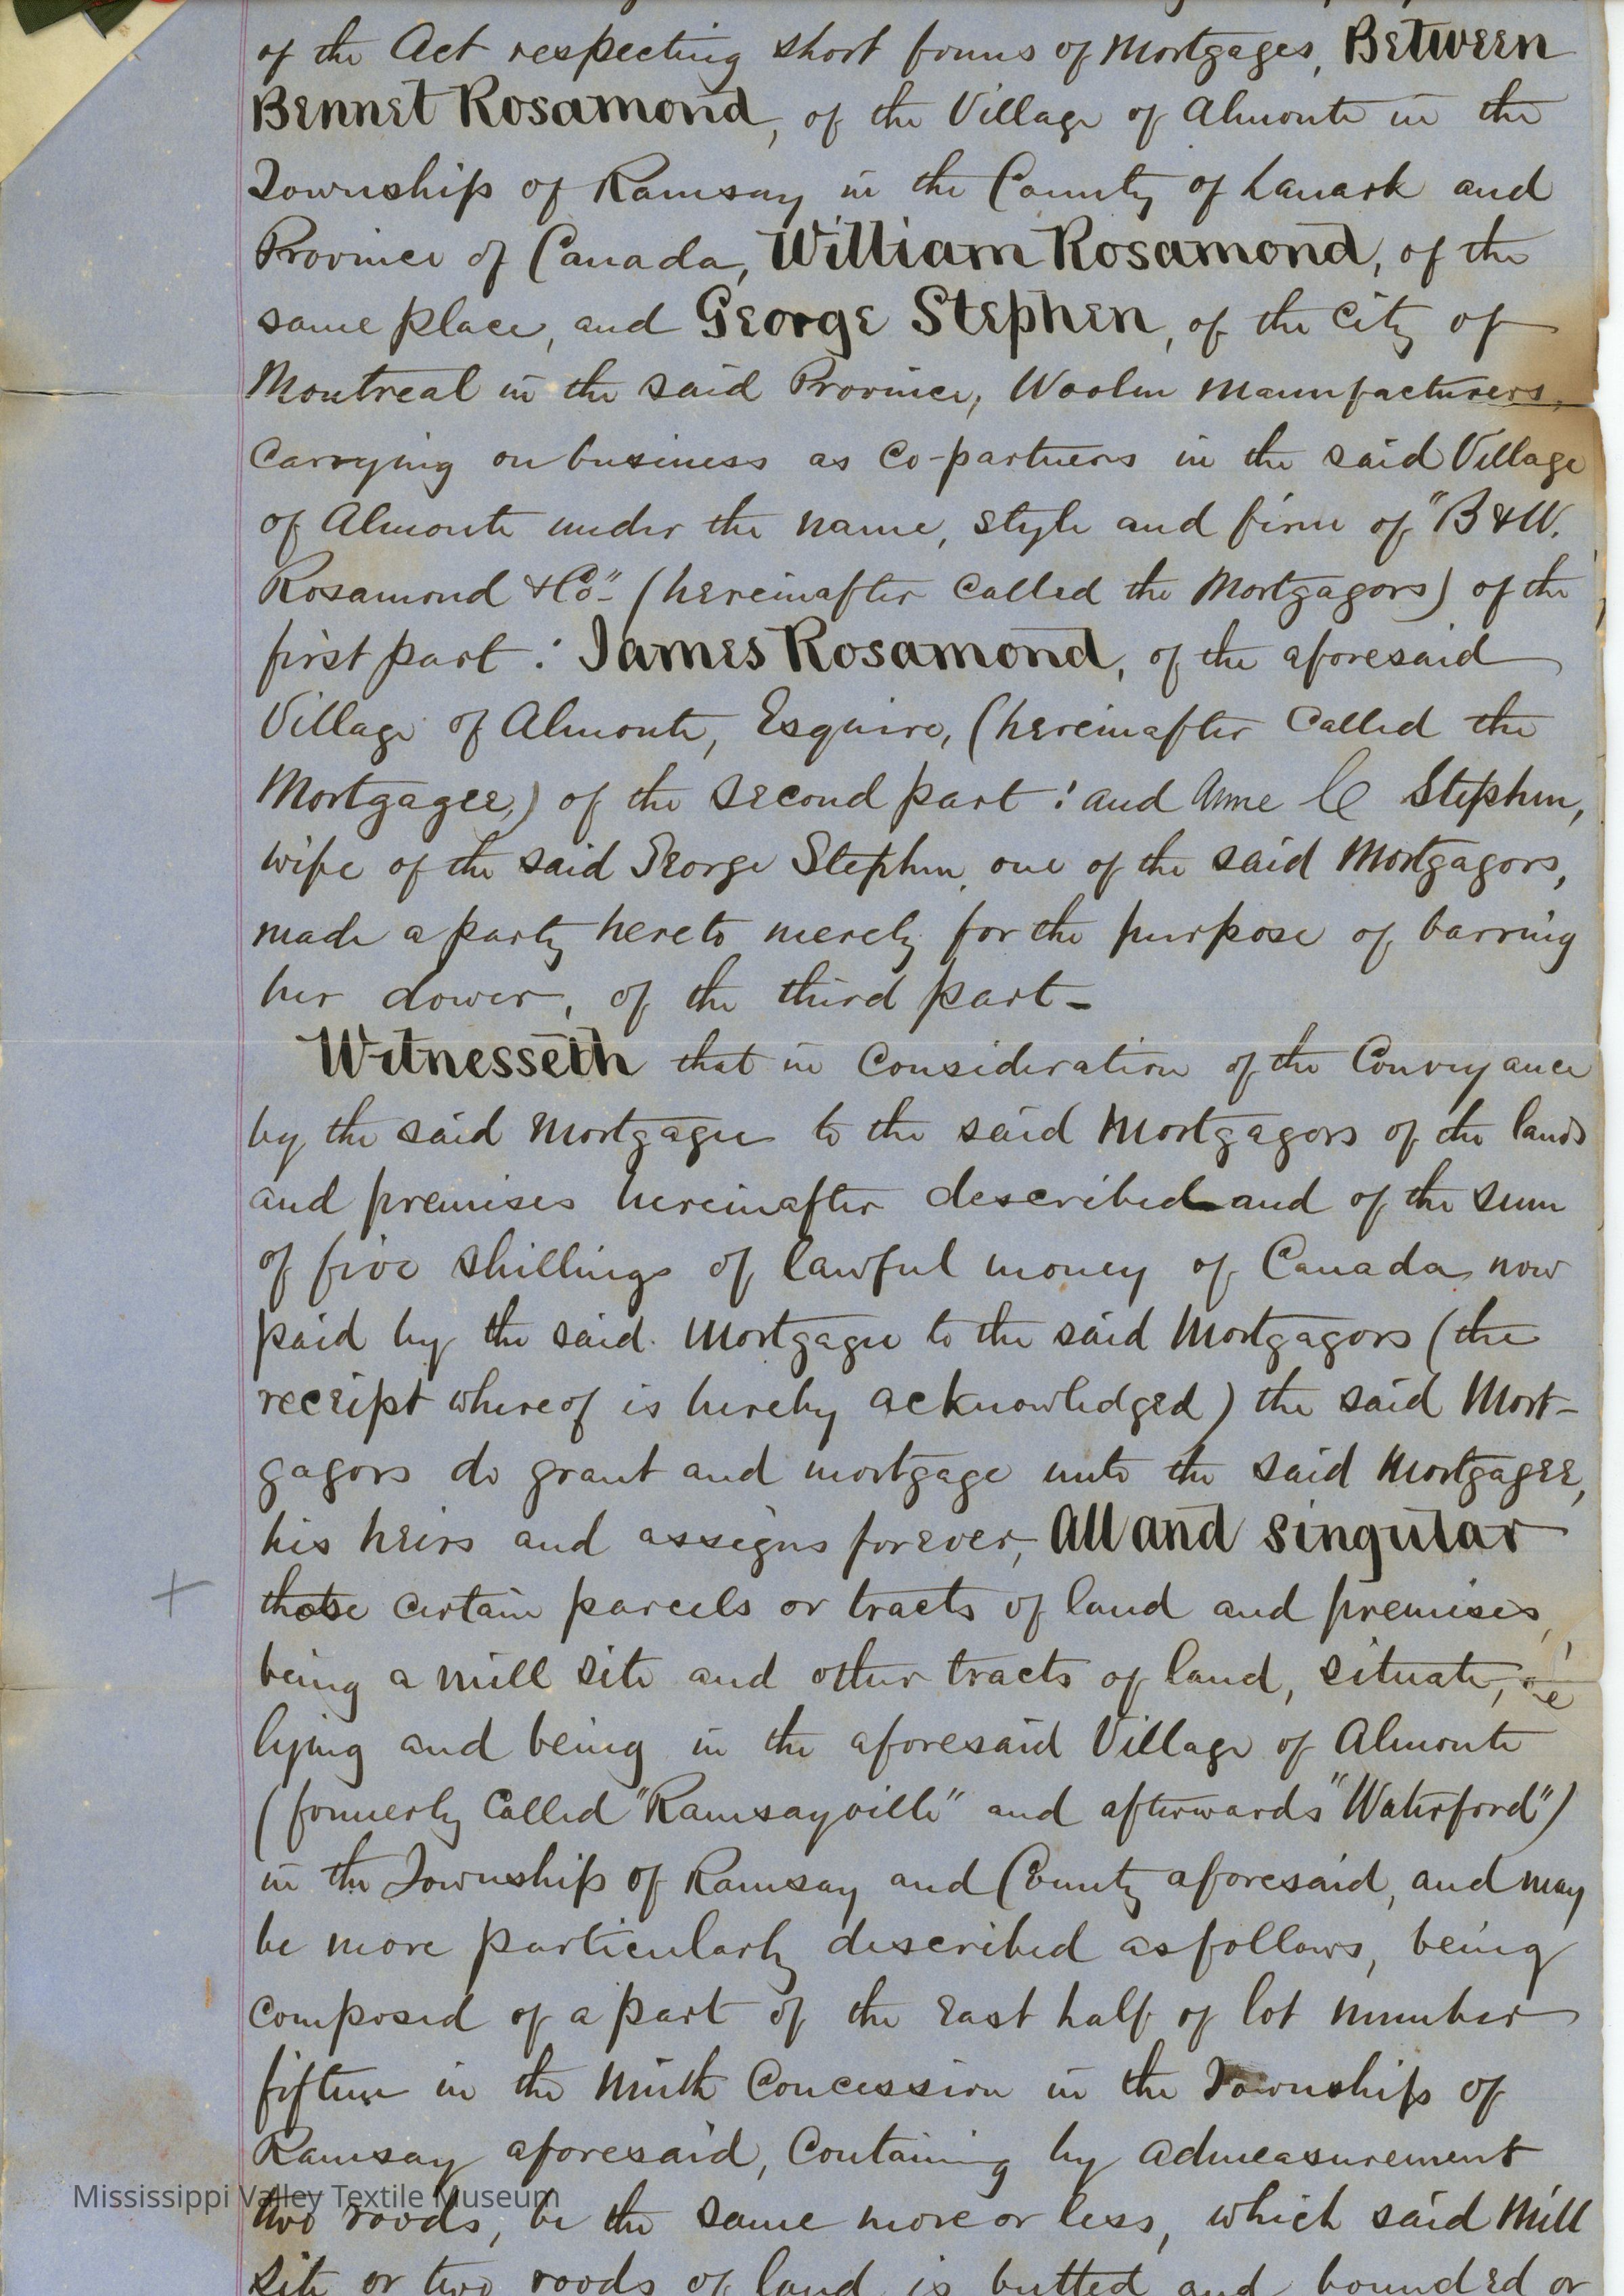 of the Act respecting short forms of Mortgages, Between
Bennet Rosamond, of the Village of Almonte in the
Township of Ramsay in the County of Lanark and
Province of Canada, William Rosamond, of the
same place, and George Stephen, of the City of
Montreal in the said Province, Woolen Manufacturers,
Carrying on business as Co-partners in the said Village
of Almonte under the name, style and firm of "B & W.
Rosamond & Co" (hereinafter called the Mortgagors) of the
first part: James Rosamond, of the aforesaid
Village of Almonte, Esquire, (hereinafter called the
Mortgagee,) of the second part: and Anne C Stephen,
wife of the said George Stephen, one of the said Mortgagors,
made a party hereto merely for the purpose of barring
her dower, of the third part-
Witnesseth that in Consideration of the Conveyance
by the said Mortgagee to the said Mortgagors of the lands
and premises hereinafter described and of the sum
of five shillings of lawful money of Canada now
paid by the said Mortgagee to the said Mortgagors (the
receipt whereof is hereby acknowledged) the said Mort-
gagors do grant and mortgage unto the said Mortgagee,
his heirs and assigns forever, All and singular
those certain parcels or tracts of land and premises,
being a mill site and other tracts of land, situate,
lying and being in the aforesaid Village of Almonte
(formerly Called "Ramsayville" and afterwards "Waterford")
in the Township of Ramsay and County aforesaid, and may
be more particularly described as follows, being
composed of a part of the East half of lot number
fifteen in the Ninth Concession in the Township of
Ramsay aforesaid, Containing by admeasurement
two roods, be the same more or less, which said Mill
site or two roods of land is butted and bounded or
Mississippi Valley Textile Museum